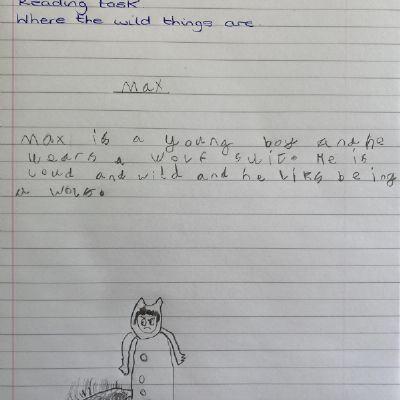 Reading task
Where the wild things are.
Max
Max is a young boy and he
wears a wolf suit. He is
loud and wild and he likes being
a wolf.